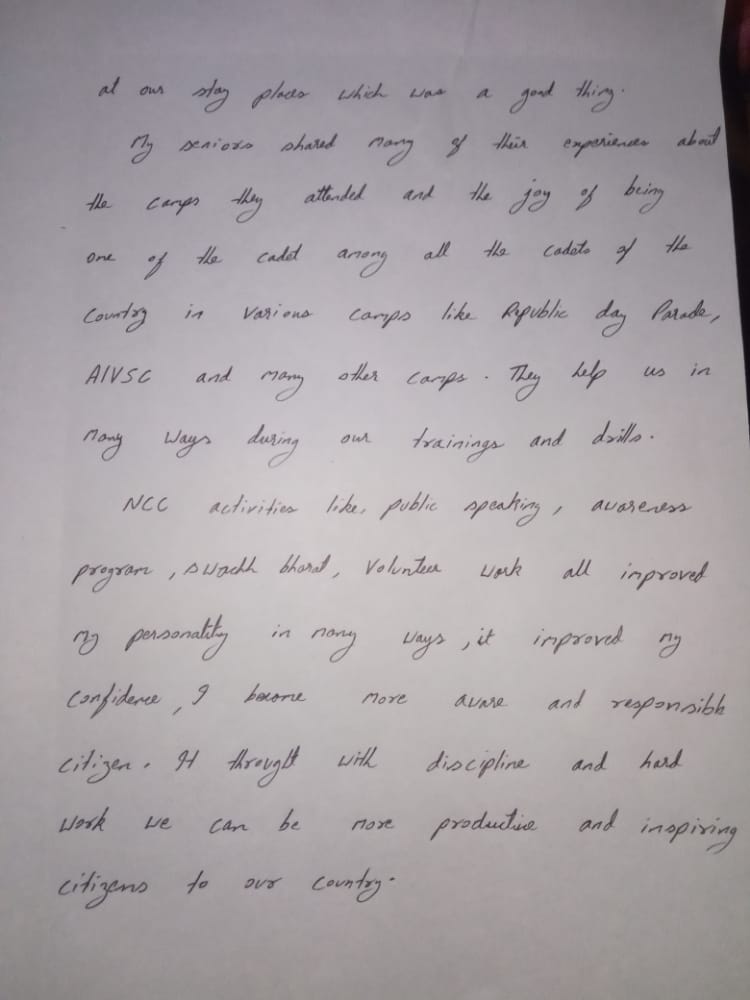 at our stay places which was a good thing.
My seniors shared many of their experiences about
the camps they attended and the joy of being
one of the cadet among all the cadets of the
country in various camps like Republic day Parade,
AIVSC and many other camps. They help us in
many ways during our trainings and drills.
NCC activities like, public speaking, awareness
program, swachh bharat, Volunteer work all improved
my personality in many ways, it improved my
confidence, I become more aware and responsible
citizen. It throught with discipline and hard
work we can be more productive and inspiring
citizens to our country.